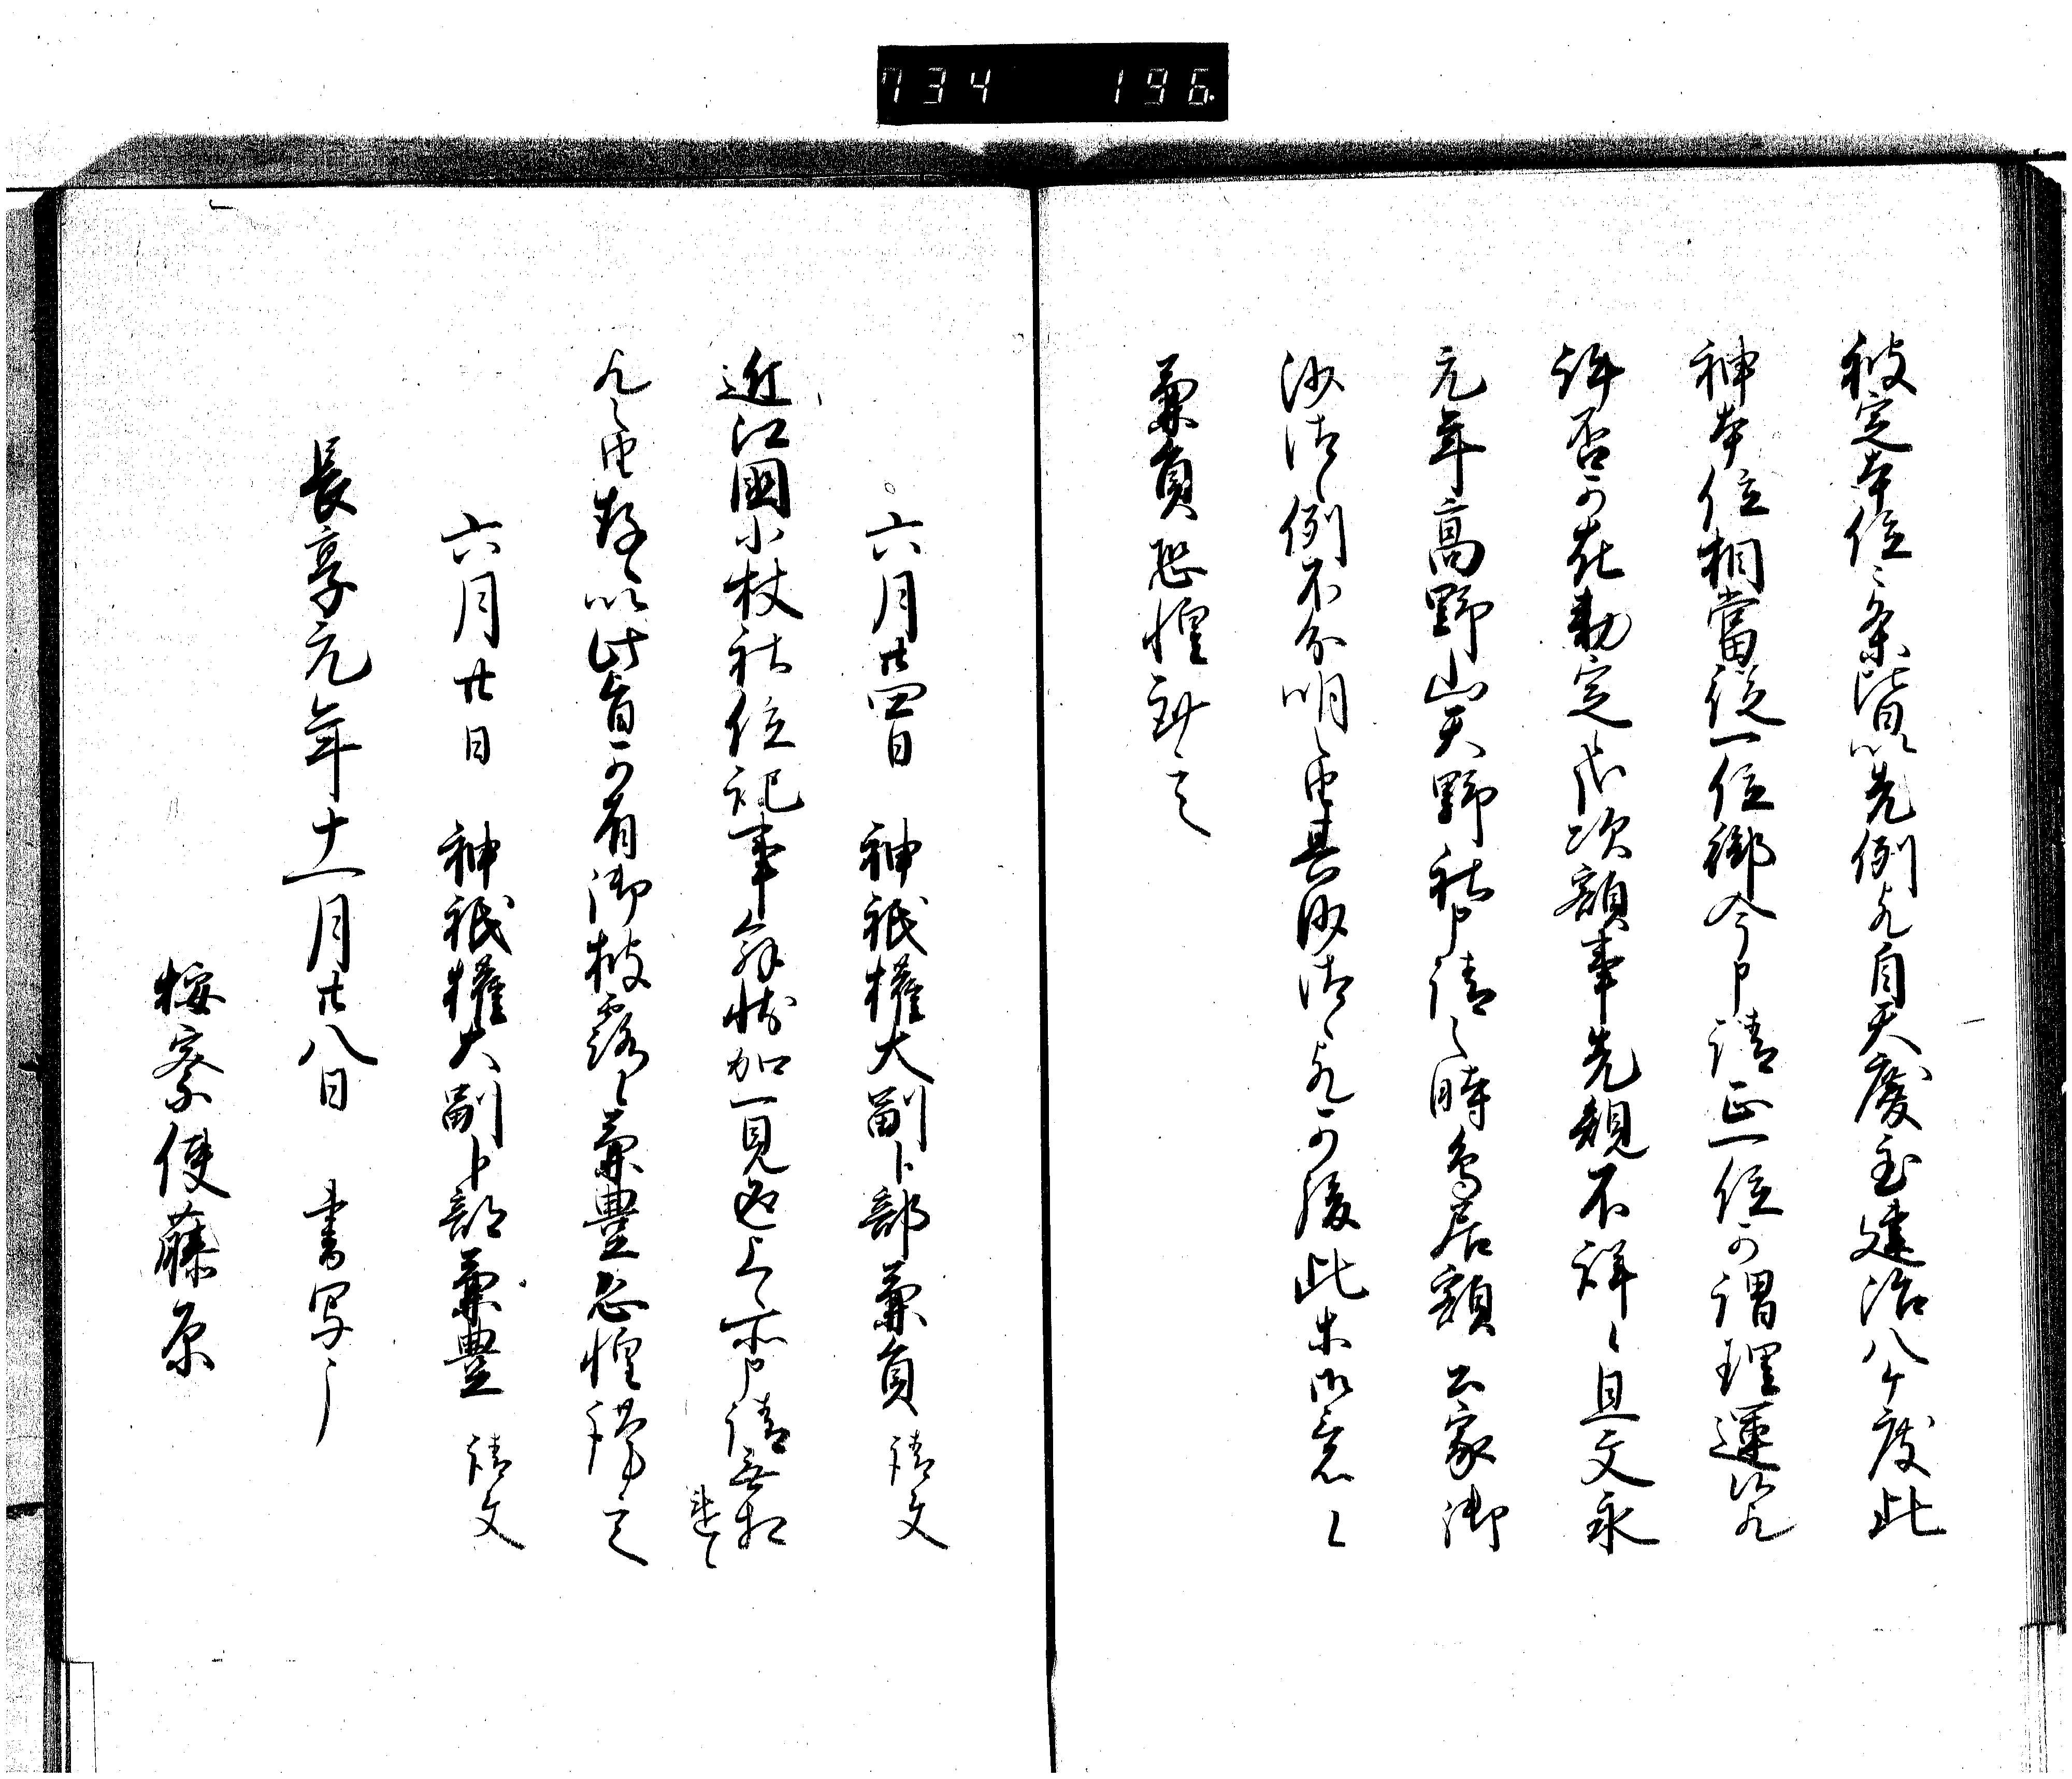 734 196
被定本位之条階以先例候自天慶至建治八ケ度此
神本位相當従一位御今申請正一位可謂理運候哉
許否可在勅定候次額事先規不詳候且文永
元年高野山天野社申請之時鳥居額公家御
沙汰之例不分明之由其沙汰候可後此等御意候
兼員恐惶謹言
六月廿四日 神祇權大副卜部兼員 請文
近江國小杖社位記事解状加一見返上之所申請無相
違之
候之由存候以此旨可有御披露候兼豊恐惶謹言
六月廿日 神祇權大副卜部兼豊 請文
長享元年十一月廿八日 書写了
按察使藤原